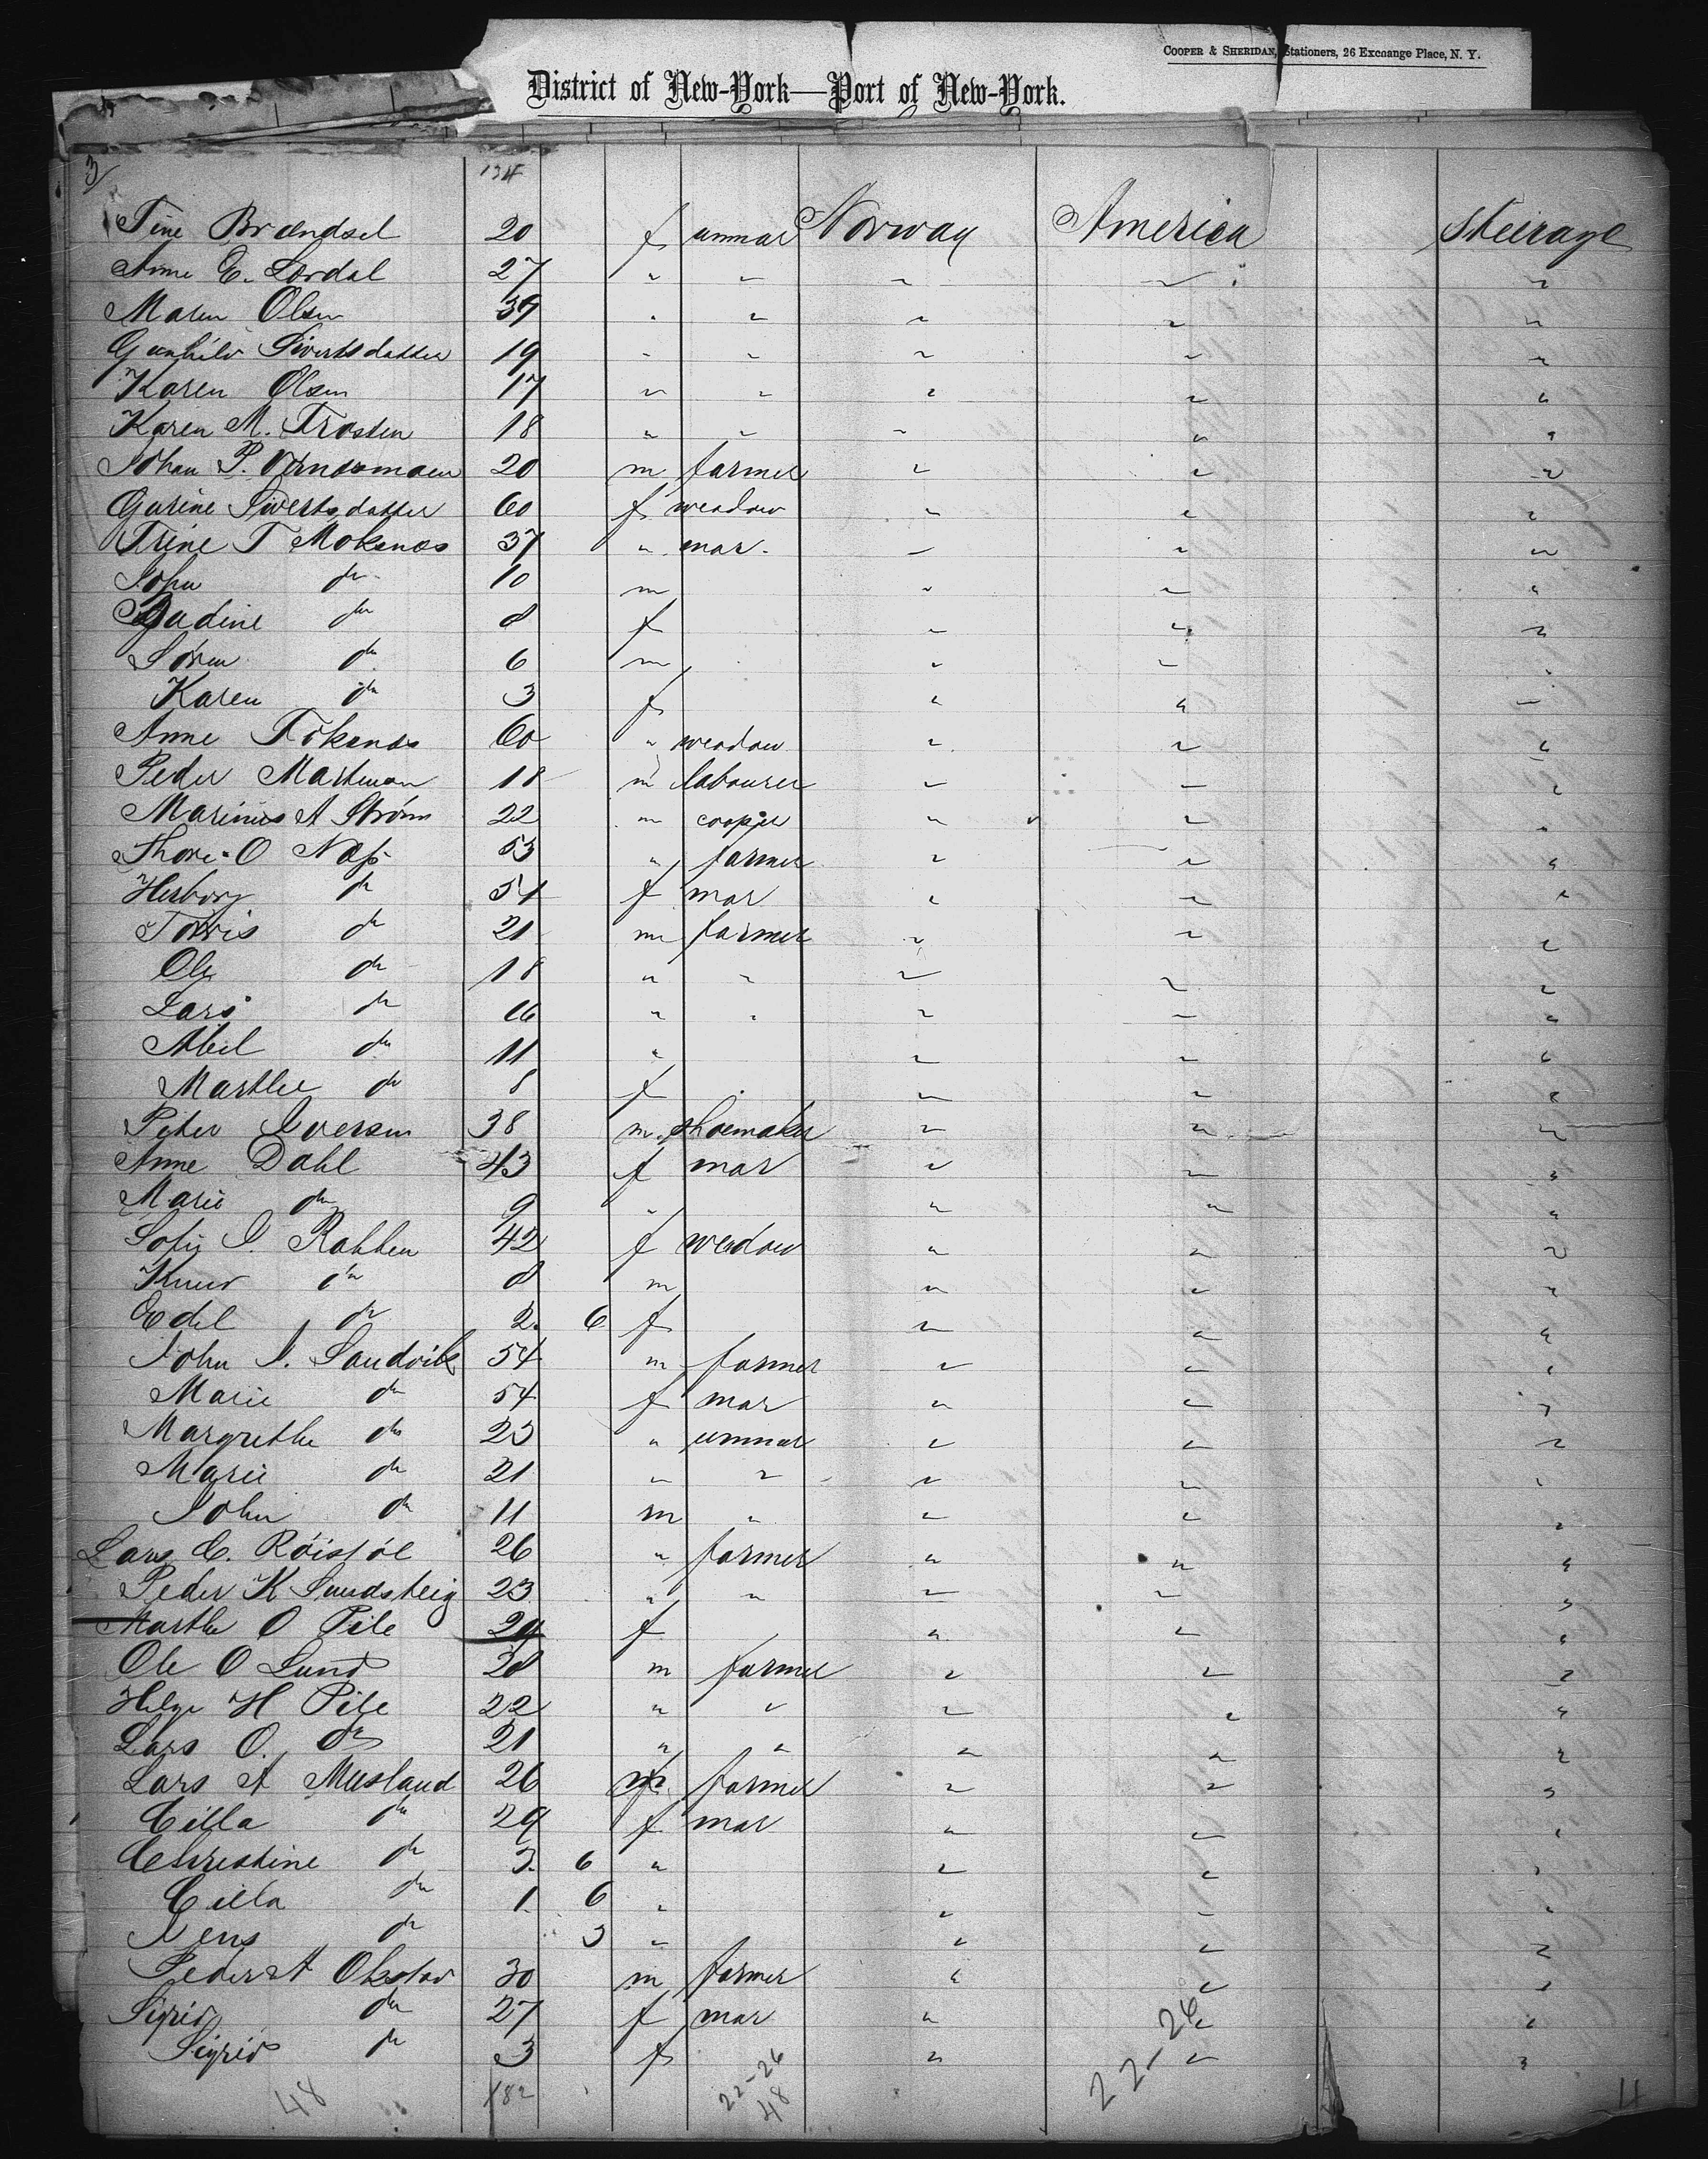 COOPER & SHERIDAN, Stationers, 26 Exchange Place, N. Y.
District of New-York—Port of New-York.
3 134
Tine Brændsel 20 f unmar Norway America Steerage
Anne E. Lordal 27 " " " " "
Maren Olsen 39 " " " " "
Gunhild Sivertsdatter 19 " " " " "
Karen Olsen 17 " " " " "
Karen M. Trosten 18 " " " " "
Johan P. 20 m farmer " " "
Gurine Sivertsdatter 60 f weadow " " "
Trine T Moksnæs 37 " mar. " " "
John do 10 m " " "
Gadine do 8 f " " "
Sören do 6 m " " "
Karen do 3 f " " "
Anne Toksnæs 60 " weadow " " "
Peder Martinsen 18 m labourer " " "
Marinus A Ström 22 m cooper " " "
Thore O Næss 53 " farmer " " "
Herborg do 54 f mar " " "
Torris do 21 m farmer " " "
Ole do 18 " " " " "
Lars do 16 " " " " "
Abel do 11 " " " "
Marthe do 8 f " " "
Peter Iversen 38 m shoemaker " " "
Anne Dahl 43 f mar " " "
Marie do 9 " " " "
Sofie I. Rabben 42 f weadow " " "
Knud do 8 m " " "
Edel do 2 6 f " " "
John I. Sandvik 54 m farmer " " "
Marie do 54 f mar " " "
Margrethe do 23 " unmar " " "
Marie do 21 " " " " "
John do 11 m " " " "
Lars C. Röisföl 26 " farmer " " "
Peder K Sundsteig 23 " " " " "
Marthe O Pile 29 f " " "
Ole O Lund 28 m farmer " " "
Helge H Pile 22 " " " " "
Lars O. do 21 " " " " "
Lars A Musland 26 m farmer " " "
Cilla do 29 f mar " " "
Christine do 3 6 " " " "
Cilla do 1 6 " " " "
Jens do 3 " " " "
Peder A Okstad 30 m farmer " " "
Sigrid do 27 f mar " " "
Sigrid do 3 f " " "
48 182 22-26 48 22-26 4